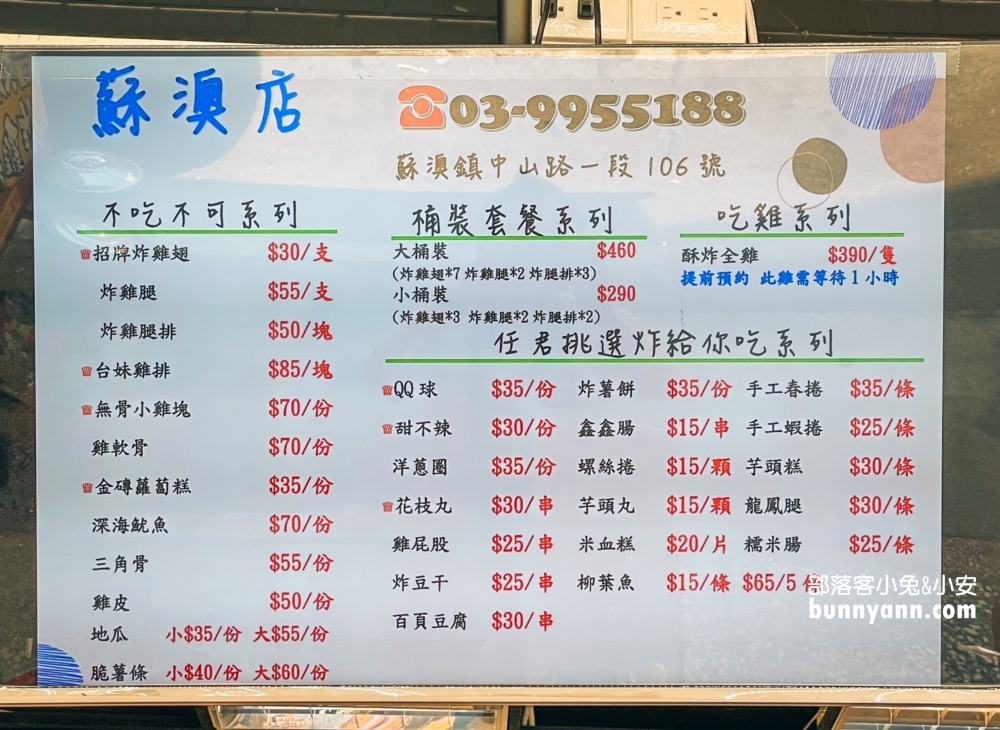 蘇澳店
03-9955188
蘇澳鎮中山路一段106號
不吃不可系列
招牌炸雞翅 $30/支
炸雞腿 $55/支
炸雞腿排 $50/塊
台妹雞排 $85/塊
無骨小雞塊 $70/份
雞軟骨 $70/份
金磚蘿蔔糕 $35/份
深海魷魚 $70/份
三角骨 $55/份
雞皮 $50/份
地瓜 小$35/份 大$55/份
脆薯條 小$40/份 大$60/份
桶裝套餐系列
大桶裝 $460
(炸雞翅*7 炸雞腿*2 炸腿排*3)
小桶裝 $290
(炸雞翅*3 炸雞腿*2 炸腿排*2)
吃雞系列
酥炸全雞 $390/隻
提前預約 此雞需等待1小時
任君挑選炸給你吃系列
QQ球 $35/份 炸薯餅 $35/份 手工春捲 $35/條
甜不辣 $30/份 鑫鑫腸 $15/串 手工蝦捲 $25/條
洋蔥圈 $35/份 螺絲捲 $15/顆 芋頭糕 $30/條
花枝丸 $30/串 芋頭丸 $15/顆 龍鳳腿 $30/條
雞屁股 $25/串 米血糕 $20/片 糯米腸 $25/條
炸豆干 $25/串 柳葉魚 $15/條 $65/5
百頁豆腐 $30/串
部落客小兔&小安
bunnyann.com